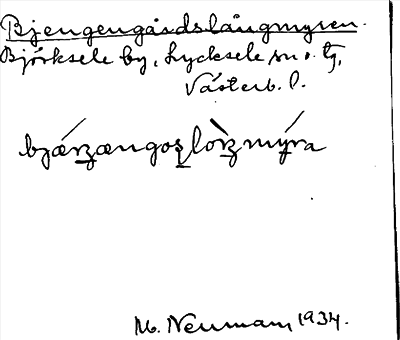 Bjengengårdslångmyren.
Björksele by, Lycksele sn o. tg,
Västerb. l.
M. Neuman 1934.